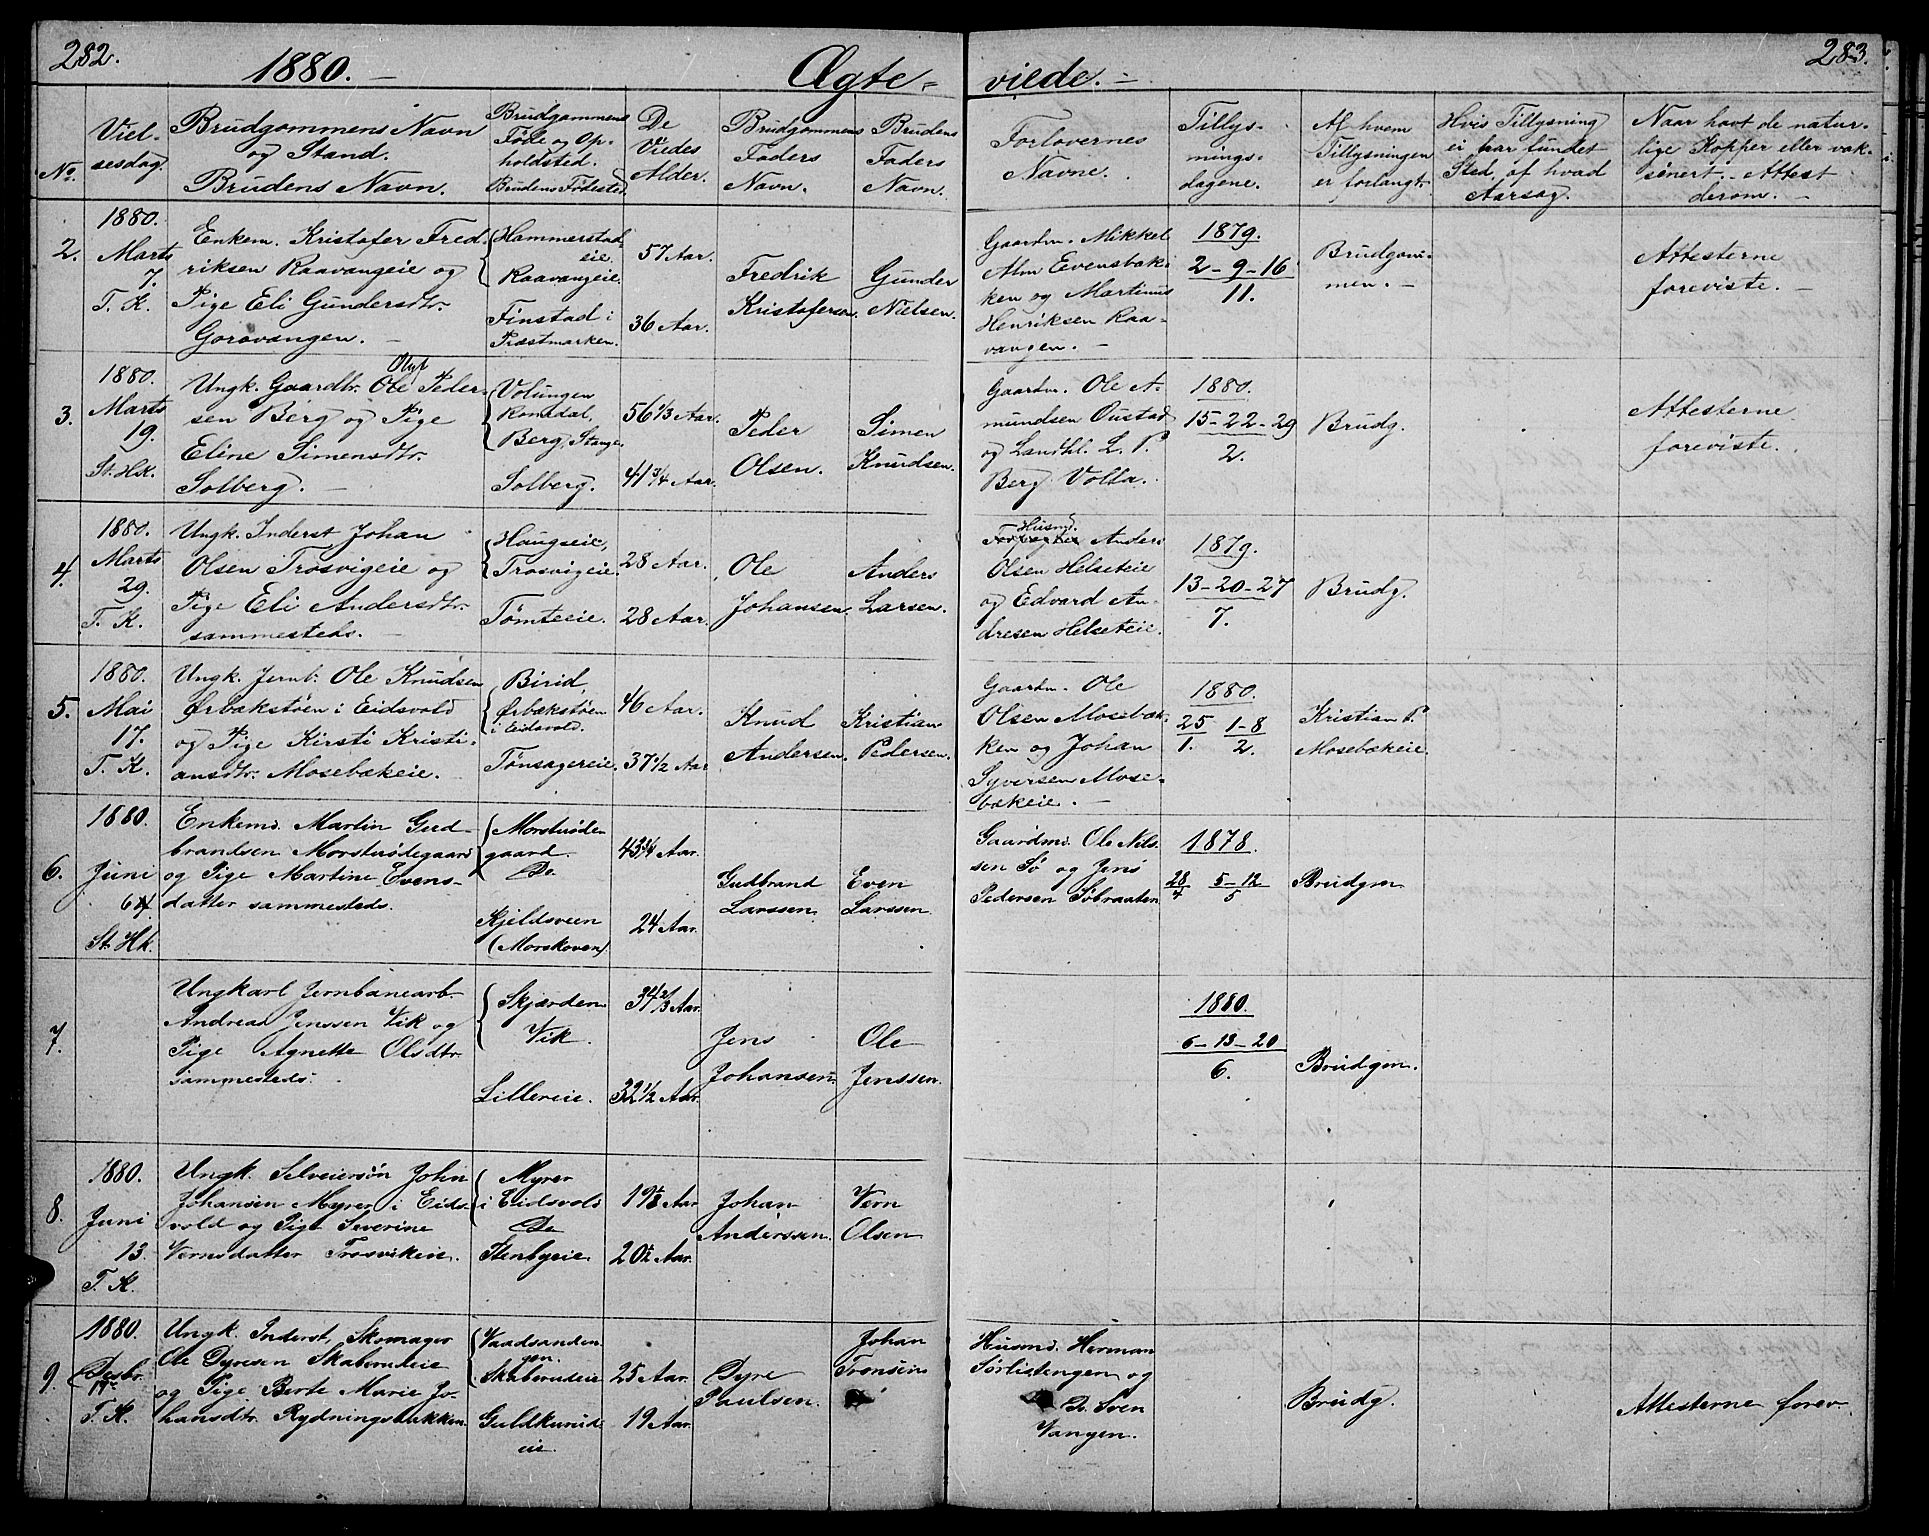 282.
1880. –
Ægte-
viede. –
283.
No.
Viel-
sesdag.
Brudgommens Navn
og Stand.
Brudens Navn.
Brudgommens
Føde og Op-
holdsted.
Brudens Fødested.
De
Viedes
Alder.
Brudgommens
Faders
Navn.
Brudens
Faders
Navn.
Forlovernes
Navne.
Tillys-
nings-
dagene.
Af hvem
Tillysningen
er forlangt.
Hvis Tillysning
ei har fundet
Sted, af hvad
Aarsag.
Naar havt de natur-
lige Kopper eller vak-
sinert. Attest
derom. –
2.
1880.
Marts
7.
T. K.
Enkem. Kristofer Fred-
riksen Raavangeie og
Pige Eli Gundersdtr.
Goravangen. –
Hammerstad-
eie.
Raavangeie.
Finstad i
Præstmarken.
57 Aar.
36 Aar.
Fredrik
Kristofersen.
Gunder
Nielsen.
Gaardm. Mikkel
Alm Evensbæk-
ken og Martinus
Henriksen Raa-
vangen. –
1879.
2-9-16
11.
Brudgom-
men. –
Attesterne
foreviste. –
3.
1880.
Marts
19.
St. Hk.
Oluf
Ungk. Gaardbr. Ole Peder-
sen Berg og Pige
Eline Simensdtr.
Solberg. –
Volungen
Romedal
Berg, Stange.
Solberg.
56 1/3 Aar.
41 3/4 Aar.
Peder
Olsen.
Simen
Knudsen.
Gaardm. Ole A-
mundsen Oustad
og Landhl. L. P.
Berg Volla.
1880.
15-22-29
2.
Brudg.
Attesterne
foreviste.
4.
1880.
Marts
29.
T. K.
Ungk. Inderst Johan
Olsen Trosvigeie og
Pige Eli Andersdtr.
sammesteds. –
Haugseie,
Trosvigeie.
Tømteeie.
28 Aar.
28 Aar.
Ole
Johansen.
Anders
Larsen.
Husmd.
Anders
Olsen Helseteie
og Edvard An-
dresen Helseteie.
1879.
13-20-27
7.
Brudg.
5.
1880.
Mai
17.
T. K.
Ungk. Jernb. Ole Knudsen
Ørbækstøen i Eidsvold
og Pige Kirsti Kristi-
ansdtr. Mosebækeie.
Birid,
Ørbækstøen
i Eidsvold.
Tønsagereie.
46 Aar.
37 1/2 Aar
Knud
Andersen.
Kristian
Pedersen.
Gaardm. Ole
Olsen Mosebæk-
ken og Johan
Syversen Mose-
bækeie. –
1880.
25 1-8
1. 2.
Kristian P.
Mosebækeie.
6.
1880.
Juni
6
St. Hk.
Enkemd. Martin Gud-
brandsen Morstuødegaard
og Pige Martine Evens-
datter sammesteds.
Morstuøde-
gaard.
Do
Kjeldsveen
(Morskoven)
43 3/4 Aar.
24 Aar.
Gudbrand
Larssen.
Even
Larssen.
Gaardmd. Ole Nils-
sen Sø og Jens
Pedersen Søbraaten
1878.
28 5-12
4 5
Brudgm
7.
Ungkarl Jernbanearb.
Andreas Jenssen Vik og
Pige Agnette Olsdtr.
sammesteds.
Skjærden
Vik.
Lillereie.
34 2/3 Aar.
32 1/2 Aar.
Jens
Johansen.
Ole
Jenssen.
1880.
6-13-20
6.
Brudgm.
8.
1880.
Juni
13.
T. K.
Ungk. Selveiersøn John
Johansen Myrer i Eids-
vold og Pige Severine
Vernsdatter Trosvikeie.
Myrer
i Eidsvold
Do
Stenbyeie
Aar
Aar.
Johan
Anderssen.
Vern
Olsen
9.
1880.
Decbr.
T. K.
Ungk. Inderst, Skomager
Ole Dyresen Skaberudeie
og Pige Berte Marie Jo-
hansdtr. Rydningsbakken
Vaadsanden
gen.
Skaberudeie
Guldkunude
eie.
25 Aar.
19 Aar.
Dyre
Paulsen.
Johan
Tronsen
Husmd. Herman
Sørlistengen og
Do Sven
Vangen.
Brudg.
Attesterne forev.